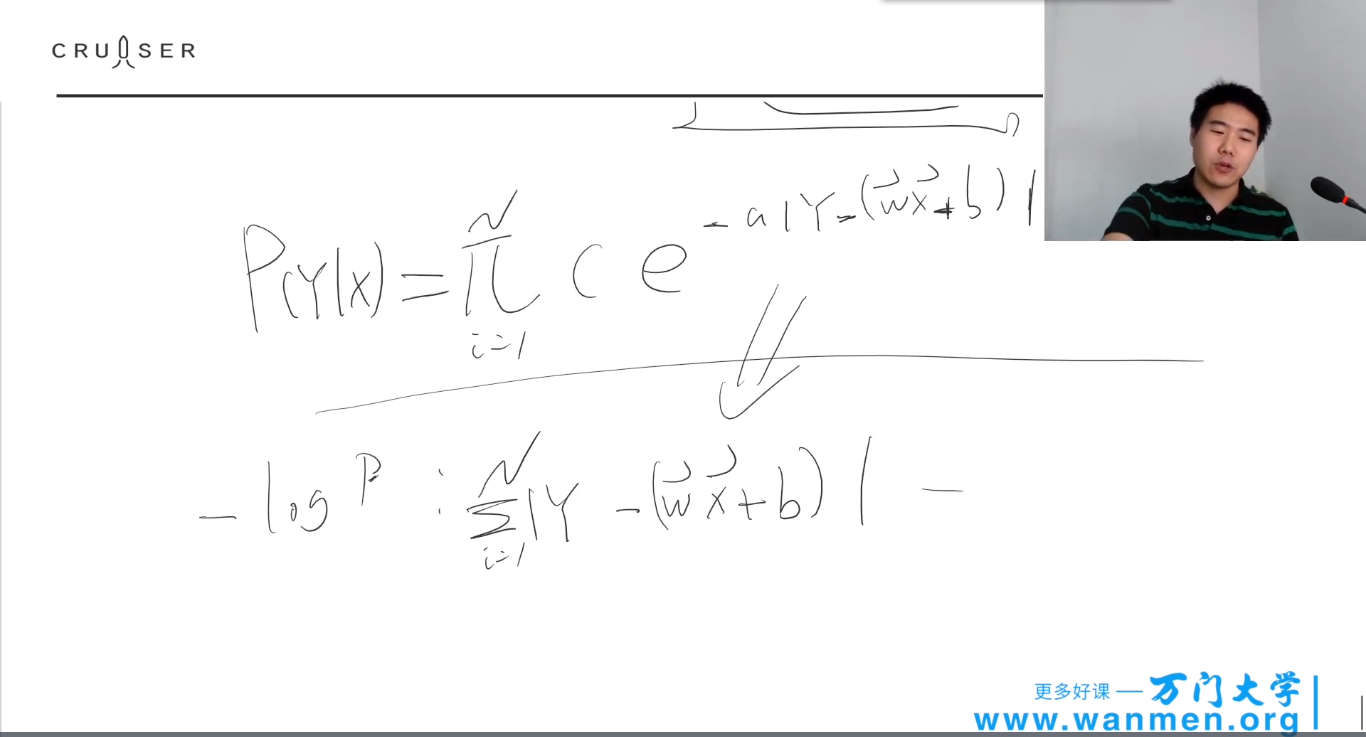 CRUISER
P(Y|X) = ∏_{i=1}^{N} c e^{-a|Y-(w⃗x⃗+b)|}
-log P : ∑_{i=1}^{N} |Y - (w⃗x⃗+b)| -
更多好课 — 万门大学
www.wanmen.org